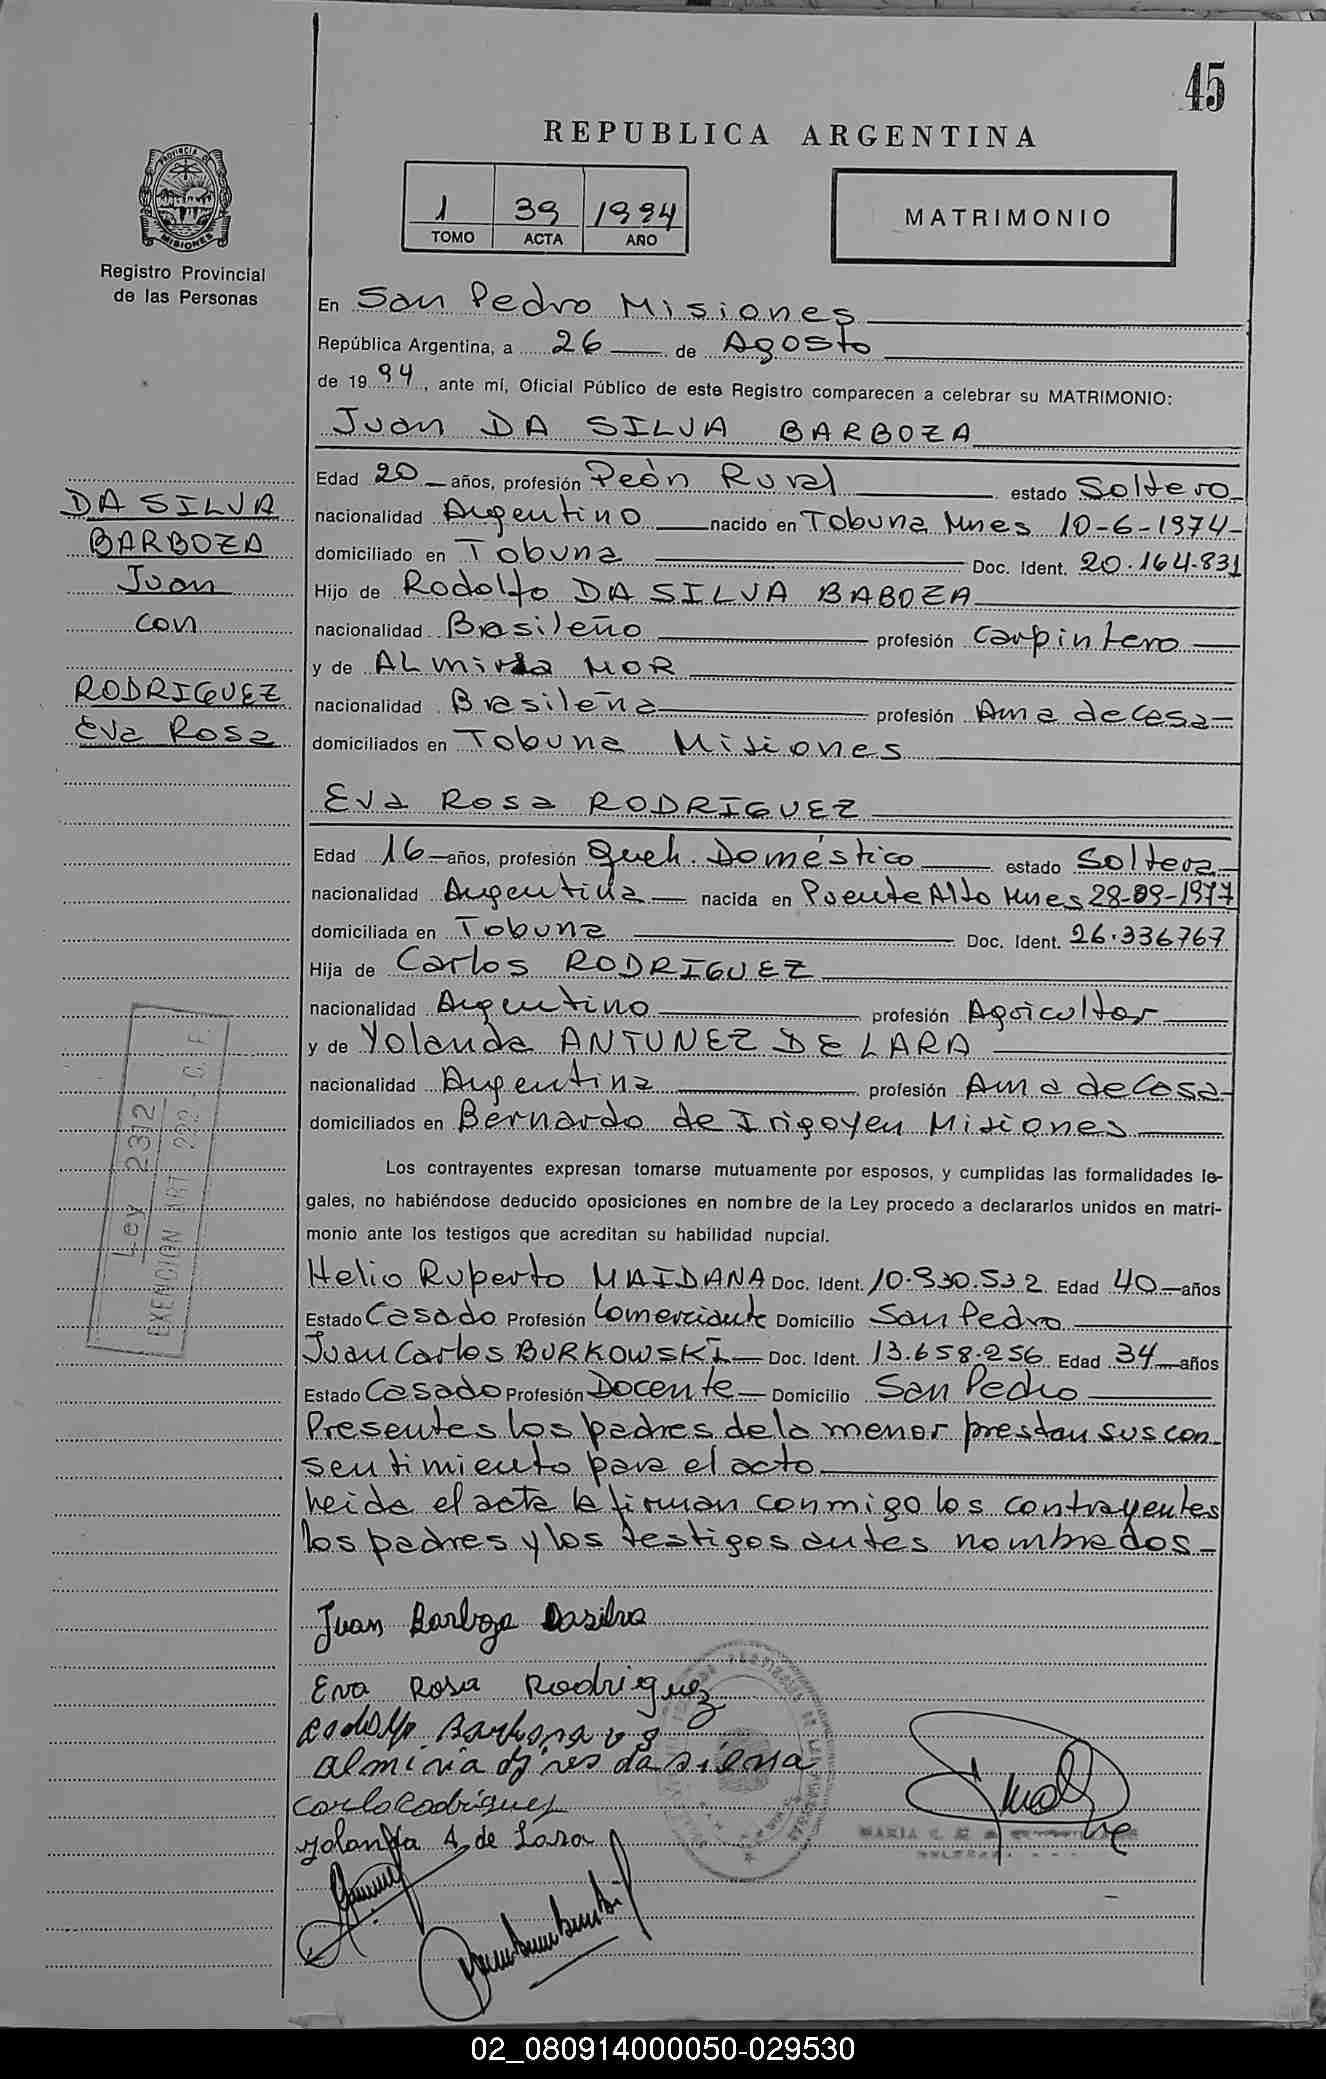 45
REPUBLICA ARGENTINA
PROVINCIA DE MISIONES
Registro Provincial
de las Personas
1 39 1994
TOMO ACTA AÑO
MATRIMONIO
En San Pedro Misiones
República Argentina, a 26 de Agosto
de 1994, ante mí, Oficial Público de este Registro comparecen a celebrar su MATRIMONIO:
Juan DA SILVA BARBOZA
DA SILVA
BARBOZA
Juan
con
RODRIGUEZ
Eva Rosa
Edad 20 años, profesión Peón Rural estado Soltero
nacionalidad Argentino nacido en Tobuna Mnes 10-6-1974-
domiciliado en Tobuna Doc. Ident. 20.164.831
Hijo de Rodolfo DA SILVA BABOZA
nacionalidad Brasileño profesión Carpintero
y de ALmirda MOR
nacionalidad Brasileña profesión Ama de Casa
domiciliados en Tobuna Misiones
Eva Rosa RODRIGUEZ
Edad 16 años, profesión Queh. Doméstico estado Soltera
nacionalidad Argentina nacida en Puente Alto Mnes 28-09-1977
domiciliada en Tobuna Doc. Ident. 26.336767
Hija de Carlos RODRIGUEZ
nacionalidad Argentino profesión Agricultor
y de Yolanda ANTUNEZ DE LARA
nacionalidad Argentina profesión Ama de Casa
domiciliados en Bernardo de Irigoyen Misiones
Los contrayentes expresan tomarse mutuamente por esposos, y cumplidas las formalidades le-
gales, no habiéndose deducido oposiciones en nombre de la Ley procedo a declararlos unidos en matri-
monio ante los testigos que acreditan su habilidad nupcial.
Ley 2312
EXENCION ART 222 C. F.
Helio Ruperto MAIDANA Doc. Ident. 10.930.532 Edad 40 años
Estado Casado Profesión Comerciante Domicilio San Pedro
Juan Carlos BURKOWSKI Doc. Ident. 13.658.256 Edad 34 años
Estado Casado Profesión Docente Domicilio San Pedro
Presentes los padres de la menor prestan sus con-
sentimiento para el acto
heida el acta la firman conmigo los contrayentes
los padres y los testigos antes nombrados-
Juan Barboza Dasilva
Eva Rosa Rodriguez
Rodolfo
almiria da
Carlo Rodriguez
yolanda A de Lara
MARIA
02_080914000050-029530